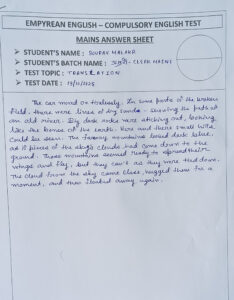 EMPYREAN ENGLISH – COMPULSORY ENGLISH TEST
MAINS ANSWER SHEET
➤ STUDENT'S NAME : SOURAV MALAKR
➤ STUDENT'S BATCH NAME : CLERK MAINS
➤ TEST TOPIC : TRANSLATION
➤ TEST DATE :
The car moved on tirelessly. In some parts of the broken
field, there were lines of dry sand – showing the path of
an old river. Big dark rocks were sticking out, looking
like the bones of the earth. Here and there small hills
could be seen. The faraway mountains looked dark blue,
as if pieces of the sky's clouds had come down to the
ground. These mountains seemed ready to spread their
wings and fly, but they can't as they were tied down.
The cloud from the sky came close, hugged them for a
moment, and then floated away again.